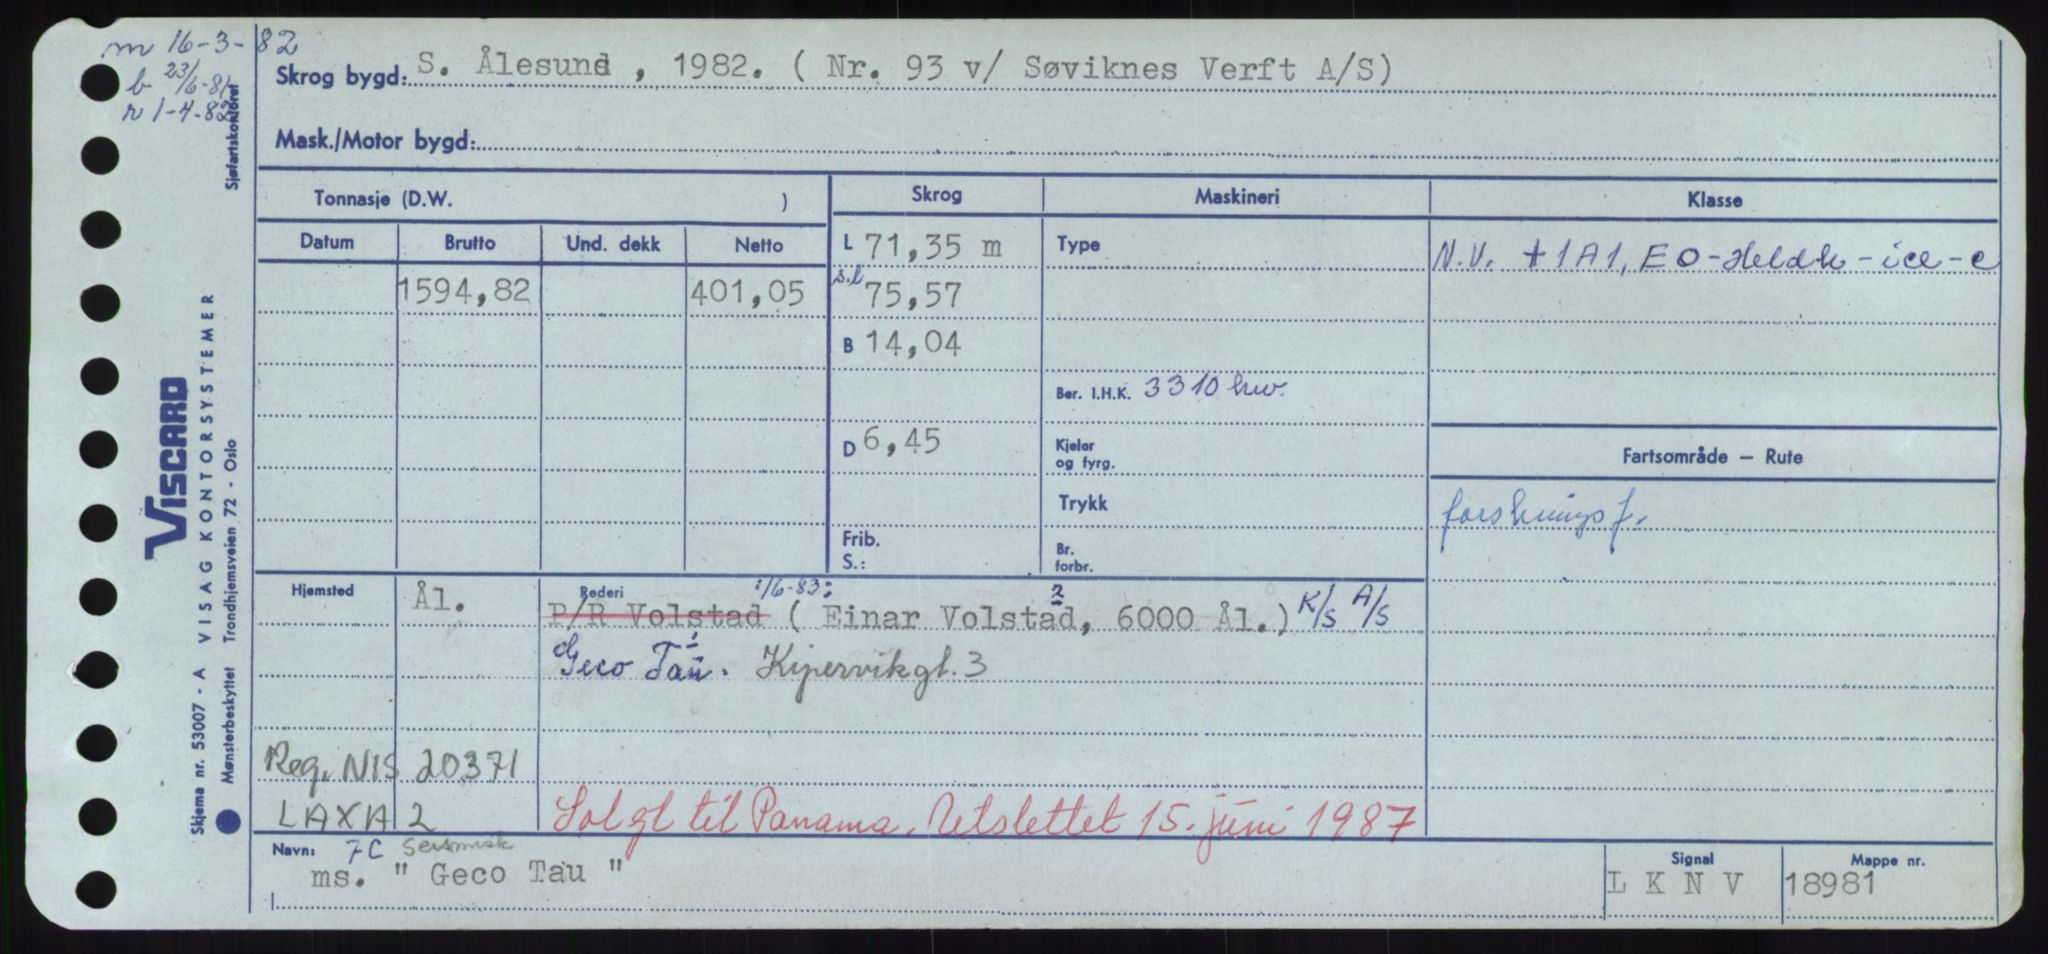 m 16-3-82
b 23/6-81
r 1-4-82
Sjøfartskontoret
Skrog bygd: S. Ålesund , 1982. ( Nr. 93 v/ Søviknes Verft A/S)
Mask./Motor bygd:
Tonnasje (D.W. ) Skrog Maskineri Klasse
Datum Brutto Und. dekk Netto L 71,35 m Type N.V. +1A1, EO-Heldk-ice-C
1594,82 401,05 s.l 75,57
B 14,04
Ber. I.H.K. 3310 kw.
D 6,45 Kjeler og fyrg. Fartsområde — Rute
Trykk forsknings f.
Frib. S.: Br. forbr.
Hjemsted Ål. Rederi 1/6-83:
P/R Volstad ( Einar Volstad, 2 6000 Ål.) K/S A/S
Geco Tau. 1 Kipervikgt. 3
Reg. NIS 20371
LAXA2 Solgt til Panama. Utslettet 15. juni 1987
Navn: 7C Seismisk Signal Mappe nr.
ms. " Geco Tau " L K N V 18981
VISCARD
VISAG KONTORSYSTEMER
Skjema nr. 53007 - A
Mønsterbeskyttet Trondhjemsveien 72 - Oslo